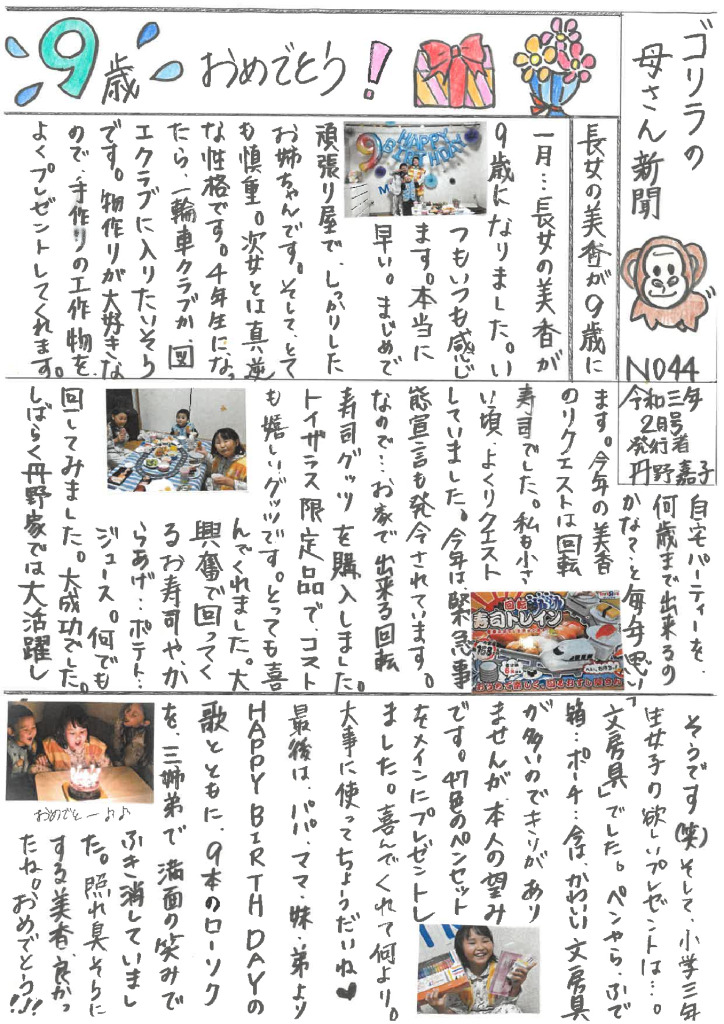 ゴリラの
母さん新聞
NO44
令和三年
2月号
発行者
丹野嘉子
9歳おめでとう!
長女の美香が9歳に
一月…長女の美香が
9歳になりました。い
つもいつも感じ
ます。本当に
早い。まじめで
頑張り屋で、しっかりした
お姉ちゃんです。そして、とて
も慎重。次女とは真逆
な性格です。4年生になっ
たら、一輪車クラブか、図
工クラブに入りたいそう
です。物作りが大好きな
ので、手作りの工作物を
よくプレゼントしてくれます。
自宅パーティーを、
何歳まで出来るの
かな？と毎年思い
ます。今年の美香
のリクエストは回転
寿司でした。私も小さ
い頃、よくリクエスト
していました。今年は、緊急事
態宣言も発令されています。
なので…お家で出来る回転
寿司グッツを購入しました。
トイザラス限定品で、コスト
も嬉しいグッツです。とっても喜
んでくれました。大
興奮で回ってく
るお寿司や、か
らあげ…ポテト…
ジュース。何でも
回してみました。大成功でした。
しばらく丹野家では大活躍し
回転
寿司トレイン
そうです(笑)そして、小学三年
生女子の欲しいプレゼントは…。
「文房具」でした。ペンやら、ふで
箱…ポーチ…今は、かわいい文房具
が多いのできりがあり
ませんが本人の望み
です。47色のペンセット
をメインにプレゼントし
ました。喜んでくれて何より。
大事に使ってちょうだいね♥
最後は、パパ、ママ、妹、弟より
HAPPY BIRTH DAYの
歌とともに、9本のローソク
を、三姉弟で満面の笑みで
ふき消していまし
た。照れ臭そうに
する美香、良かっ
たね。おめでとう!!!
おめでとー♪♪
HAPPY
BIRTHDAY